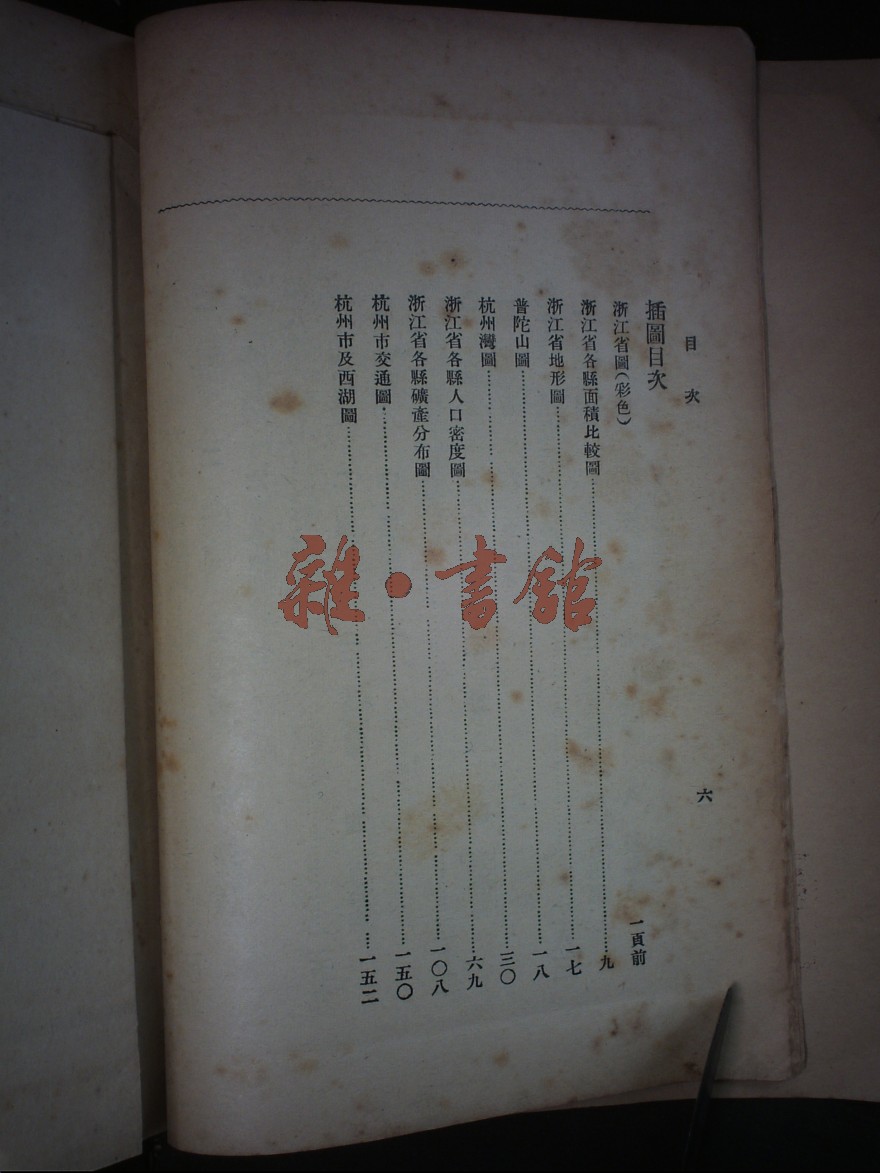 目次
六
插圖目次
浙江省圖(彩色) 一頁前
浙江省各縣面積比較圖……九
浙江省地形圖……一七
普陀山圖……一八
杭州灣圖……三〇
浙江省各縣人口密度圖……六九
浙江省各縣礦產分布圖……一〇八
杭州市交通圖……一五〇
杭州市及西湖圖……一五二
雜·書館